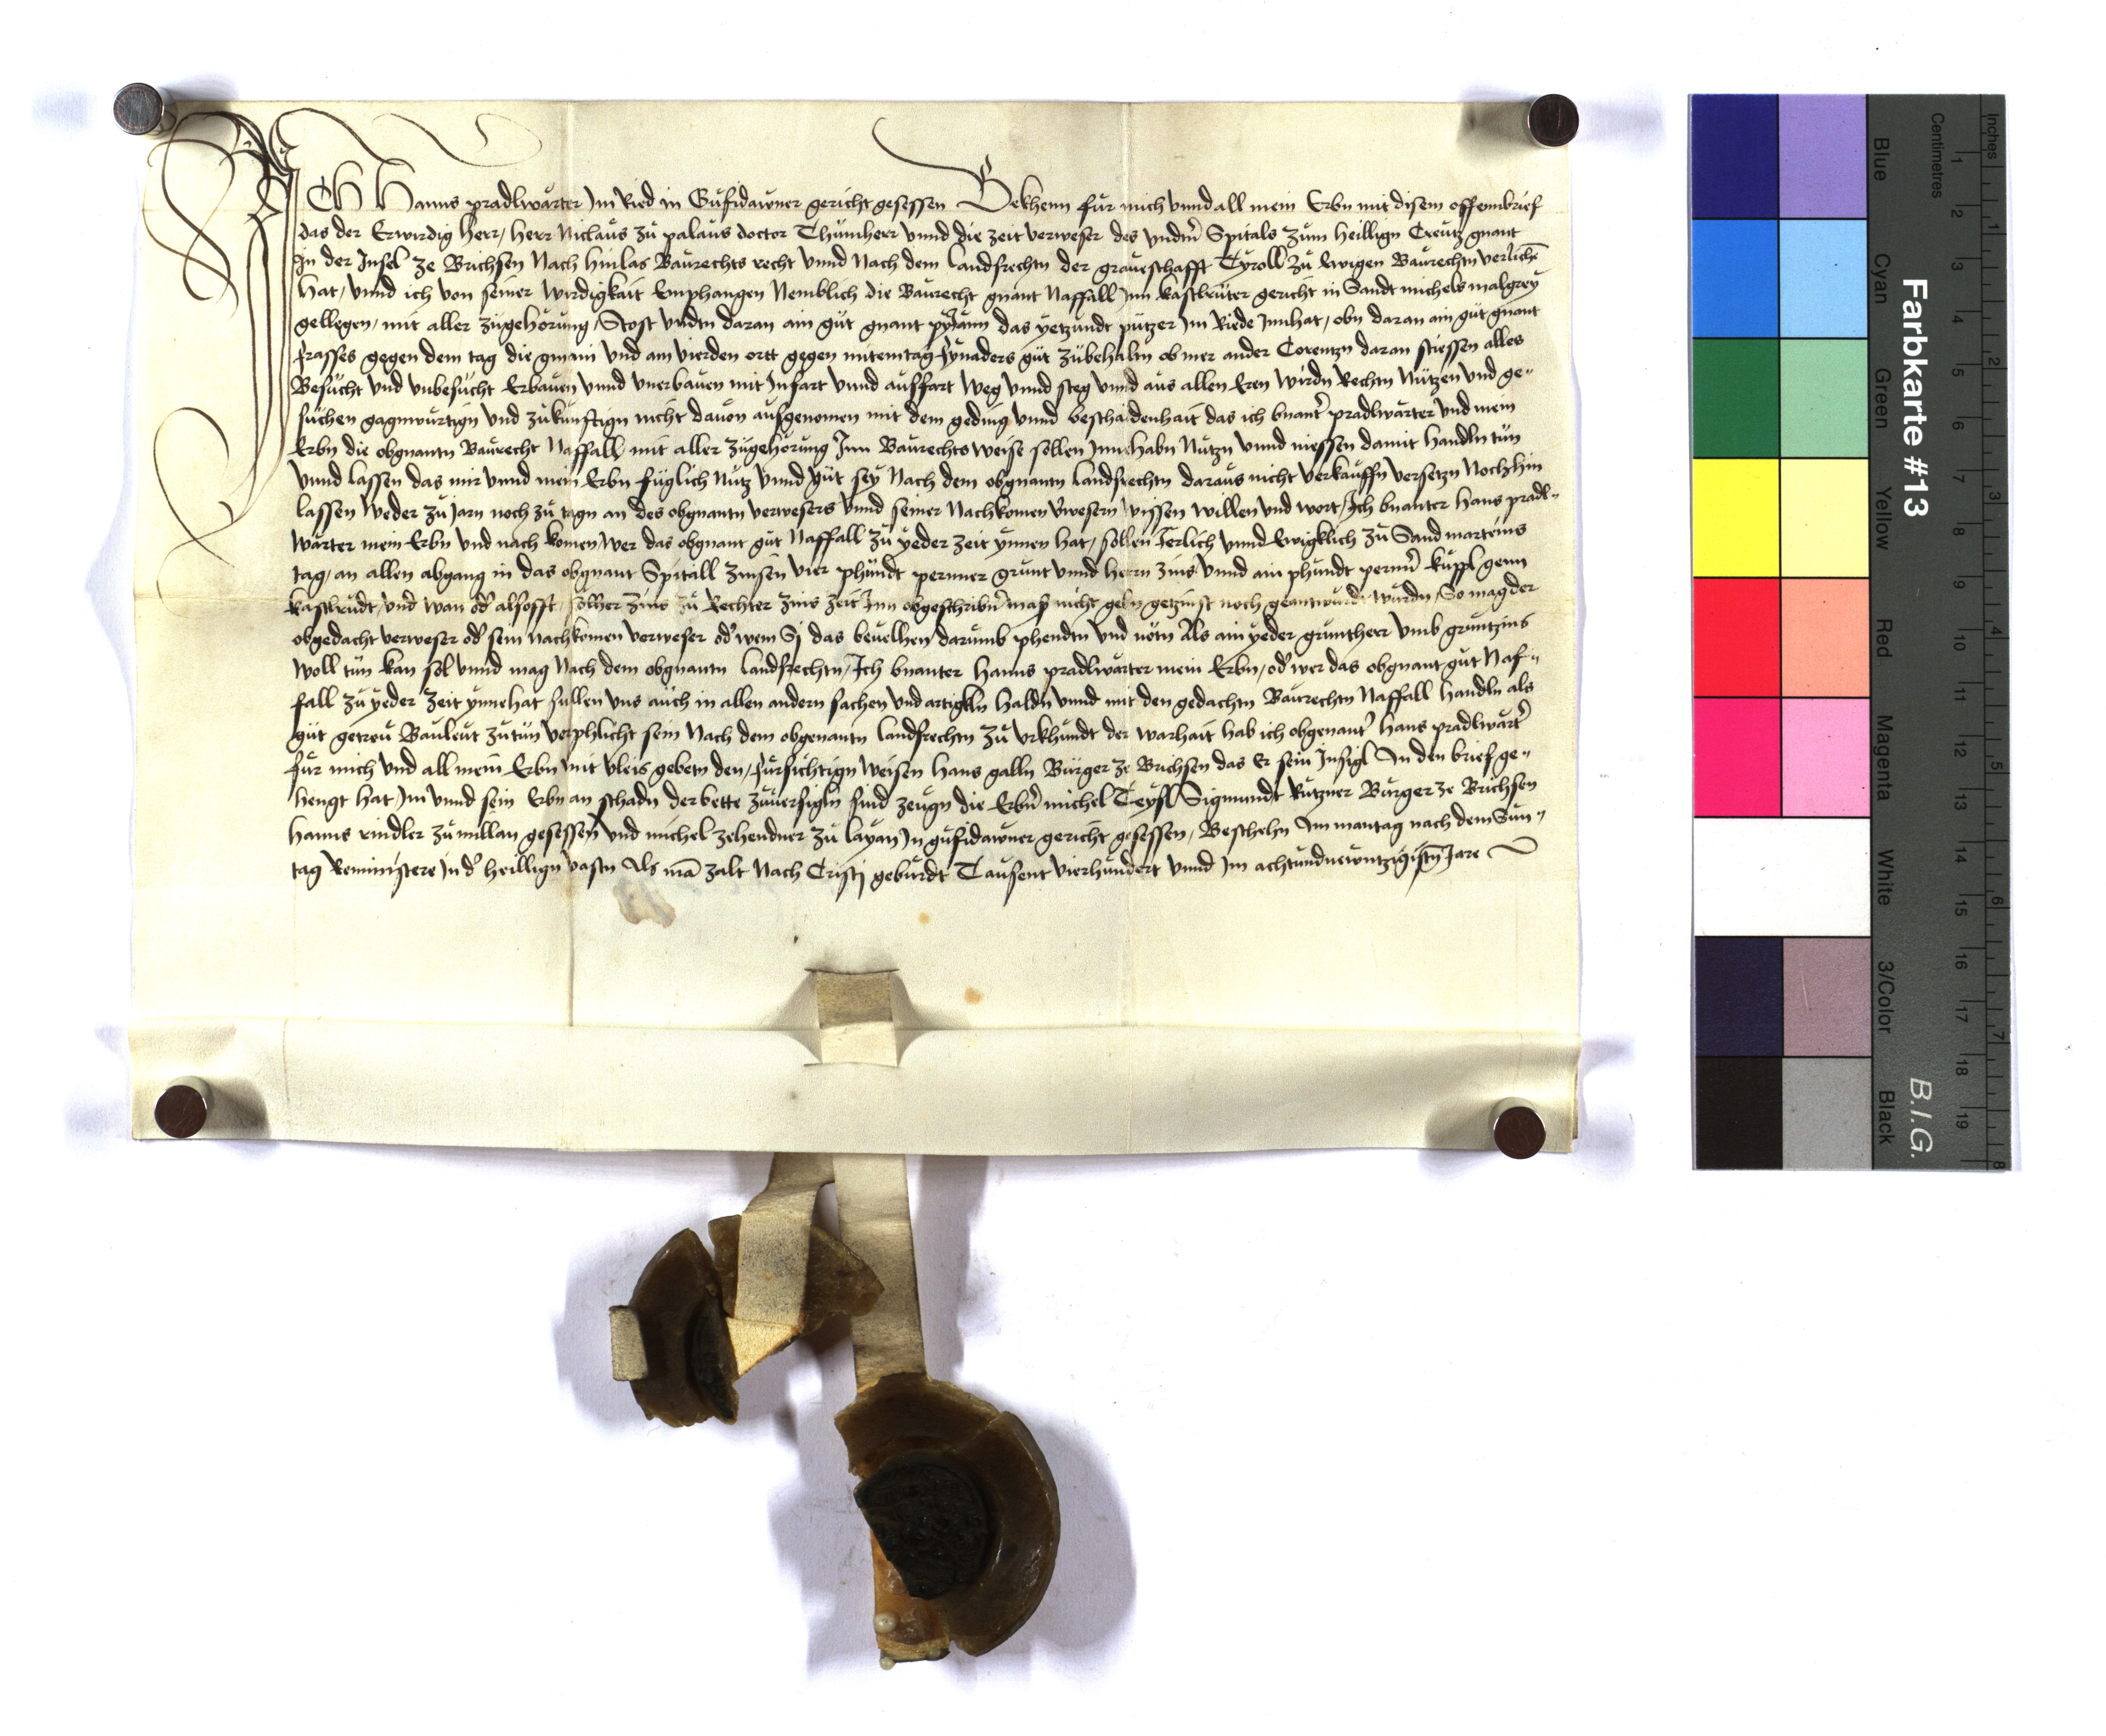 ICh Hanns pradlwarter Im Ried in Gufidawner gericht gesessen Bekhenn für mich vnnd all mein Erbn mit disem offenmbrief
das der Erwirdig herr, herr Niclaus zu palaus doctor Thumherr vnnd die zeit verweser des vndern Spitals zum heillign Creutz gnant
In der Insel ze Brichsen Nach hinlas Baurechts recht vnnd Nach dem landsrechtn der graueschafft Tyroll zu Ewigen Baurechtn verlichn
hat, vnnd ich von seiner wirdigkait Emphangen Nemblich die Baurecht gnant Naffall Inn kastlruter gericht in Sandt michels malgrey
gellegen, mit aller zugehorung, Stost vndtn daran ain gut gnant das yetzundt putzer Im Riede Innhat, obn daran ain gut gnant
frasses gegen dem tag die gmain vnd am vierden ortt gegen mitemtag gut zubehaltn ob mer ander Corentzn daran stiessen alles
Besucht vnd vnbesucht Erbauen vnnd vnerbauen mit Infart vnnd ausfart weg vnnd steg vnnd aus allen Eren wirdn Rechtn Nutzen vnd ge-
suchen gagnwurtign vnd zukunftign nicht dauon ausgenomen mit dem geding vnnd beschaidenhait das ich bnanter pradlwarter vnd mein
Erbn die obgnantn Baurecht Naffall mit aller zugehorung Inn Baurechts weise sollen Innehabn Nutzn vnnd niessen damit handln tun
vnnd lassen das mir vnnd mein Erbn fuglich Nutz vnnd gut sey Nach dem obgnantn landsrechtn daraus nicht verkauffn versetzn Noch hin
lassen weder zu Jarn noch zu tagn an des obgnantn verwesers vnnd seiner Nachkomen verwesern wissen willen vnd wort, Ich bnanter hans pradl-
warter mein Erbn vnd nach komen, wer das obgnant gut Naffall zu yeder zeit ynnen hat, sollen Jerlich vnnd Ewigklich zu Sand marteins
tag, an allen abgang in das obgnant Spitall zinsen vier phundt perner grunt vnnd herrn zins vnnd ain phundt perner kuppl genn
kastlrudt, vnd wan oder alsofft solher zins zu Rechter zins zeit Inn obgeschribner mass nicht gebn getzinst noch geantwurdt wurdn, So mag der
obgedacht verweser oder sein nachkomen verweser oder wem Sj das beuelhen darumb phendtn vnd nötn als ain yeder gruntherr vmb gruntzins
woll tun kan sol vnnd mag Nach dem obgnantn landsrechtn, Ich bnanter hanns pradlwarter mein Erbn, oder wer das obgnant gut Naf-
fall zu yeder zeit ynnehat sullen vns auch in allen andern sachen vnd artigkln haldn vnnd mit den gedachtn Baurechtn Naffall handln als
gut getreu Bauleut zutun verphlicht sein Nach dem obgenantn landsrechtn zu vrkhundt der warhait hab ich obgenanter hans pradlwarter
fur mich vnd all mein Erbn mit vleis gebetn den, fursichtign weisen hans galln Burger ze Brichsen das Er sein Insigl An den brief ge-
hengt hat Im vnnd sein Erbn an schadn der bette zuuersigln sind zeugn die Erbern michel Teysl Sigmundt kutzner Burger ze Brichsen
hanns rindler zu millan gesessen vnd michel zehendner zu layan In gufidawner gericht gesessen, Beschehn Am mantag nach dem Sun-
tag Reministere In der heillign vastn Als man zalt Nach Cristj geburdt Tausent vierhundert vnnd Im achtundnewntzigistn Jare
Farbkarte #13
B.I.G.
Blue Cyan Green Yellow Red Magenta White 3/Color Black
Centimetres 1 2 3 4 5 6 7 8 9 10 11 12 13 14 15 16 17 18 19
Inches 1 2 3 4 5 6 7 8